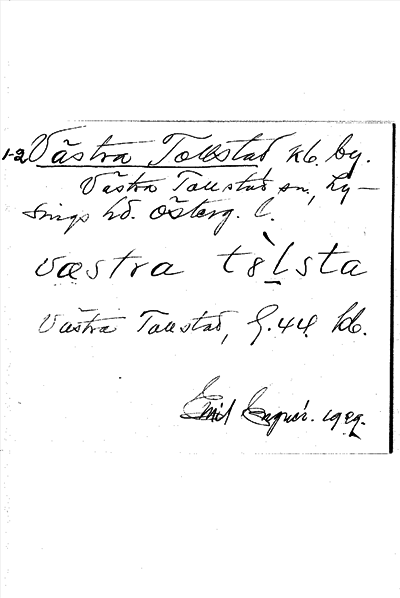 1-2 Västra Tollstad kb. by.
Västra Tollstad sn, Ly-
sings hd. Österg. l.
væstra tòlsta
Västra Tollstad, G.44. kb.
Emil